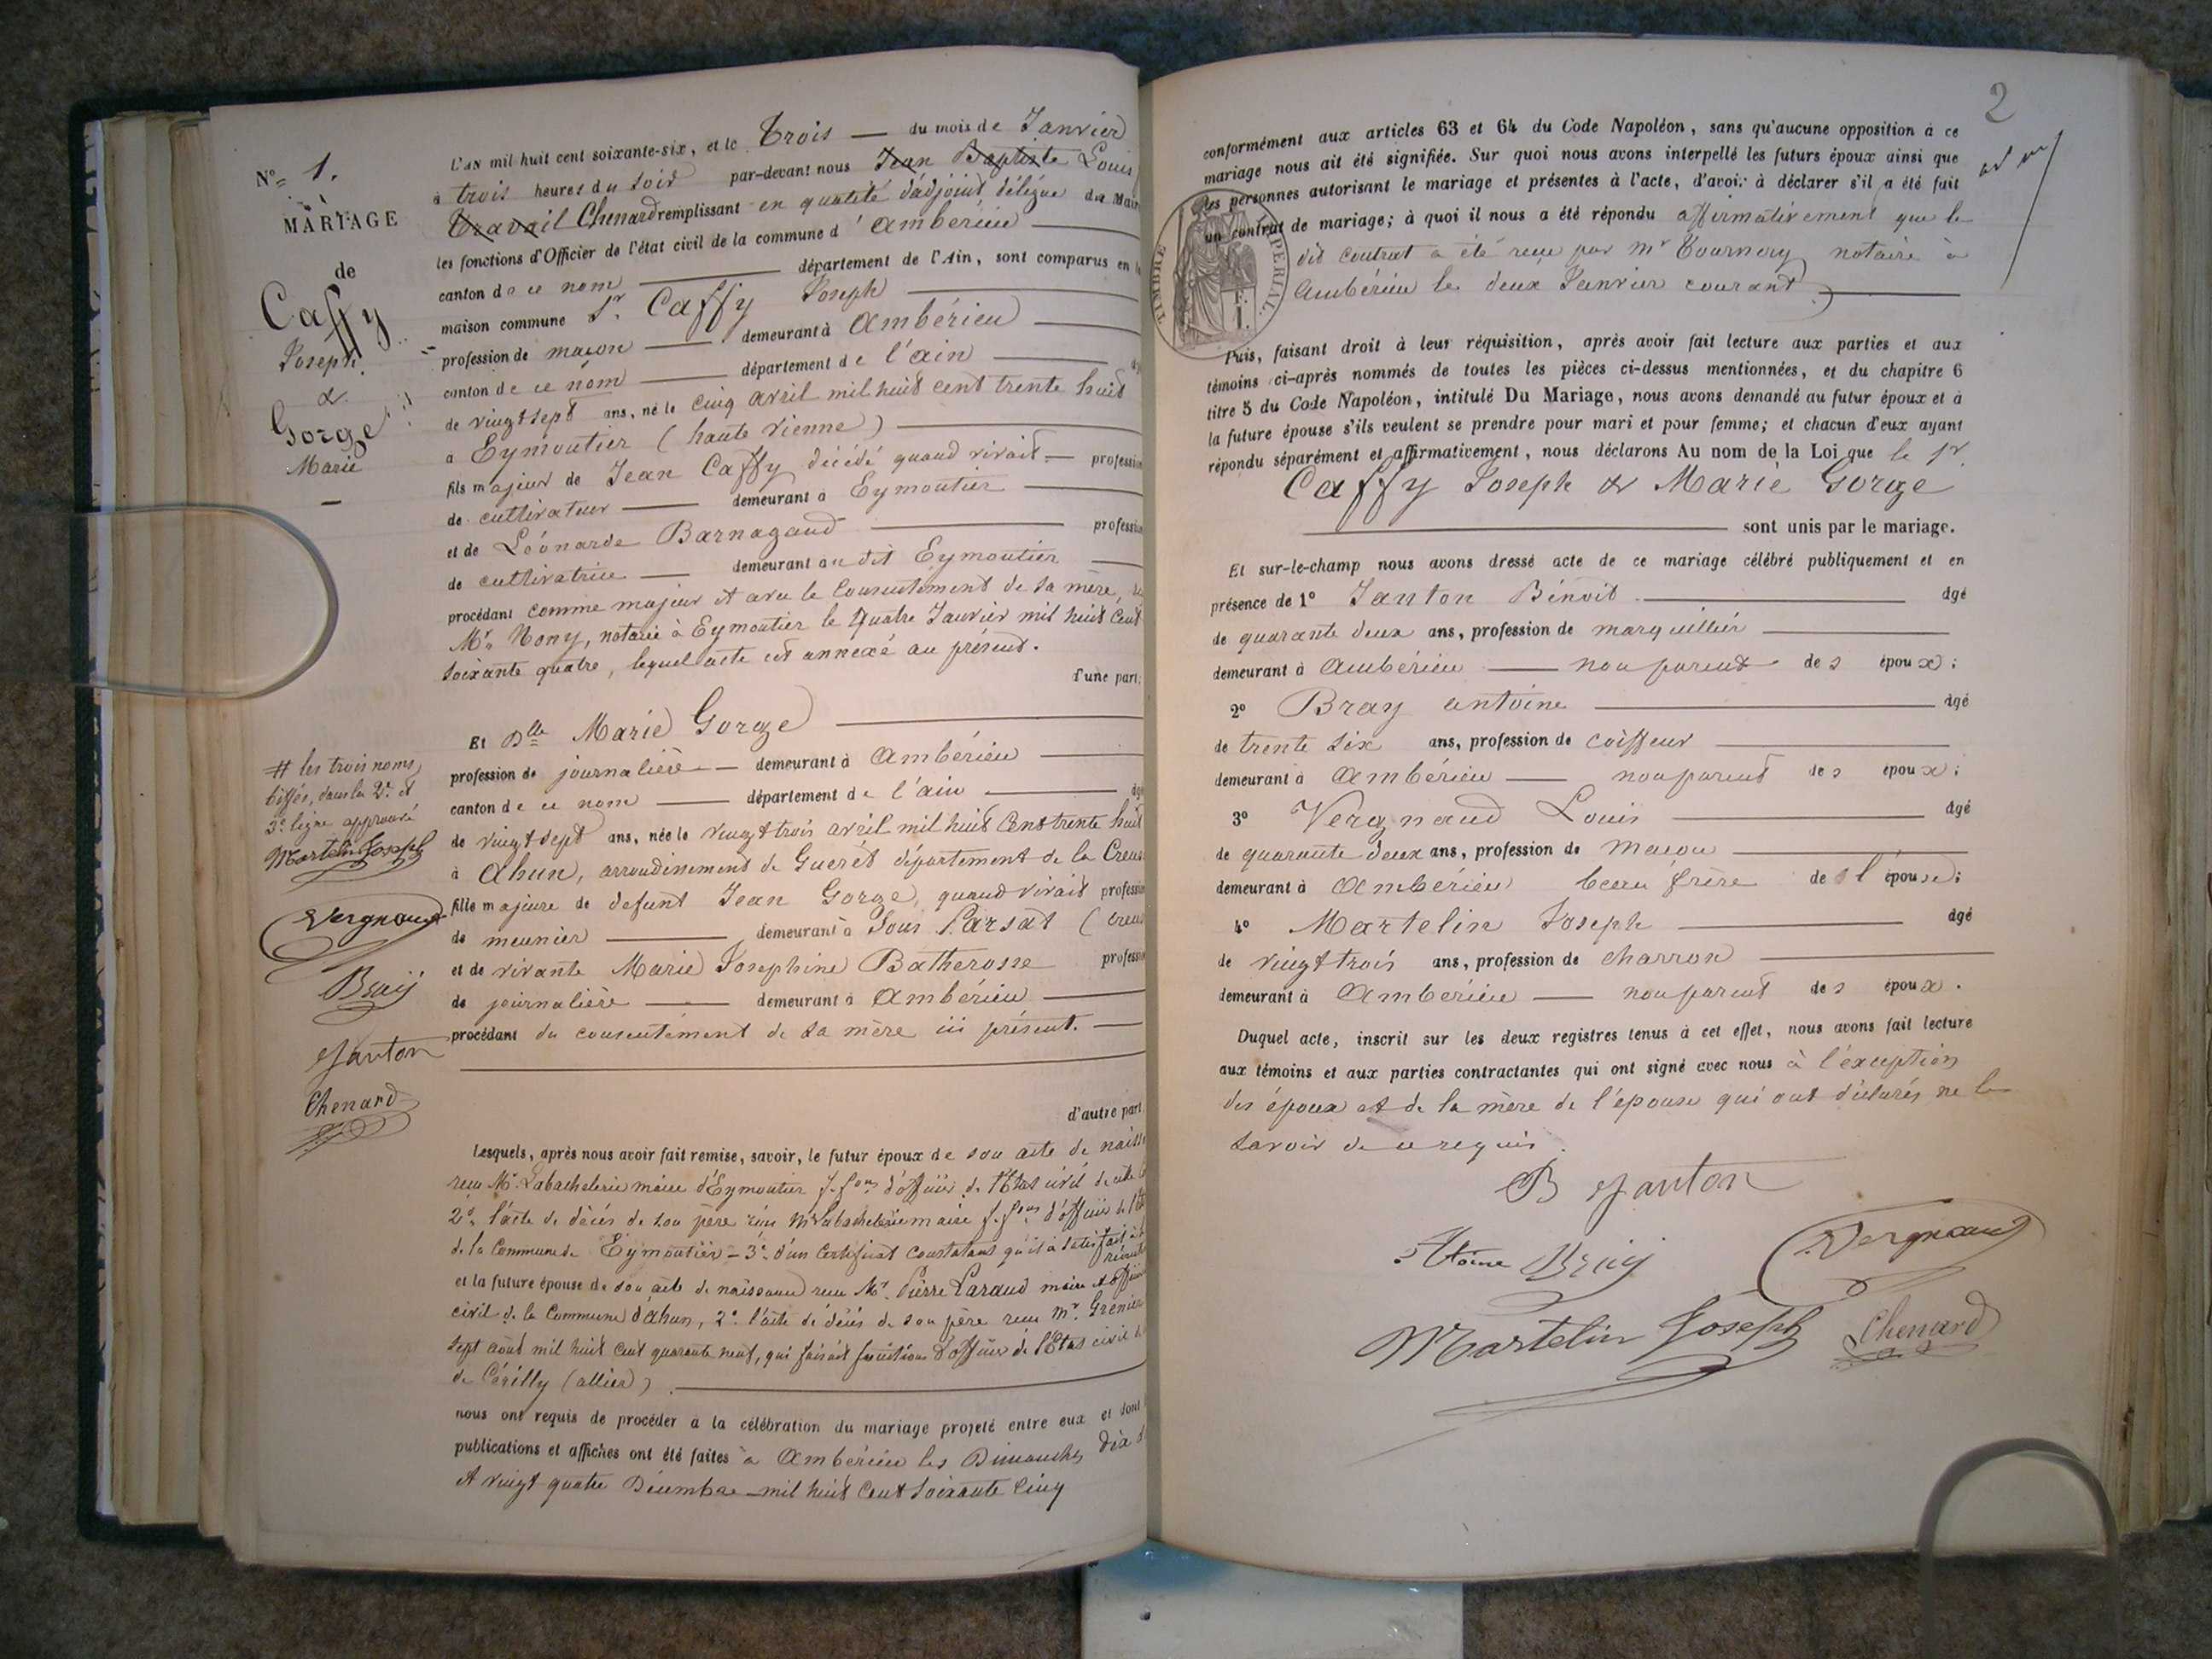 N° 1.
MARIAGE
de
Caffy
Joseph.
&
Gorge
Marie
# les trois noms
biffés, dans la 2e et
3e ligne approuvé
Martelin Joseph
Vergnaud
Bray
Janton
Chenard
L'AN mil huit cent soixante-six, et le Trois du mois de Janvier
à trois heures du soir par-devant nous Jean Baptiste Louis
Travail Chenard remplissant en qualité d'adjoint délégué du Maire
les fonctions d'Officier de l'état civil de la commune d'Ambérieu
canton de ce nom département de l'Ain, sont comparus en la
maison commune Sr. Caffy Joseph
profession de maçon demeurant à Ambérieu
canton de ce nom département de l'ain
de vingt sept ans, né le cinq avril mil huit cent trente huit
à Eymoutier (haute Vienne)
fils majeur de Jean Caffy décédé quand vivait profession
de cultivateur demeurant à Eymoutier
et de Léonarde Barnagaud profession
de cultivatrice demeurant au dit Eymoutier
procédant comme majeur et avec le consentement de sa mère,
Mr. Nony, notaire à Eymoutier le quatre Janvier mil huit cent
soixante quatre, lequel acte est annexé au présent.
d'une part;
Et Dlle Marie Gorge
profession de journalière demeurant à Ambérieu
canton de ce nom département de l'ain
de vingt sept ans, née le vingt trois avril mil huit cent trente huit
à Ahun, arrondissement de Guerét département de la Creuse
fille majeure de defunt Jean Gorge, quand vivait profession
de meunier demeurant à Sous Parsat (Creuse
et de vivante Marie Josephine Batherosse profession
de journalière demeurant à Ambérieu
procédant du consentement de sa mère ici présent.
d'autre part.
Lesquels, après nous avoir fait remise, savoir, le futur époux de son acte de naiss
reçu Mr. Labachelerie maire d'Eymoutier f. fons d'officier de l'Etat civil de cette
2°. l'acte de décès de son père reçu Mr Labachelerie maire f. fons d'officier de l'
de la Commune de Eymoutier - 3°. d'un certificat constatant qu'il a satisfait à
et la future épouse de son acte de naissance reçu Mr. Pierre Laraud maire et officier
civil de la Commune d'Ahun, 2°. l'acte de décès de son père reçu Mr. Grenier
sept août mil huit cent quarante neuf, qui faisait fonctions d'officier de l'Etat civil
de Cérilly (allier)
nous ont requis de procéder à la célébration du mariage projeté entre eux et dont
publications et affiches ont été faites à Ambérieu les Dimanches dix
et vingt quatre Décembre mil huit cent soixante cinq
2
conformément aux articles 63 et 64 du Code Napoléon, sans qu'aucune opposition à ce
mariage nous ait été signifiée. Sur quoi nous avons interpellé les futurs époux ainsi que
les personnes autorisant le mariage et présentes à l'acte, d'avoir à déclarer s'il a été fait
un contrat de mariage; à quoi il nous a été répondu affirmativement que le
dit contrat a été reçu par Mr Tournery notaire à
Ambérieu le deux Janvier courant
TIMBRE IMPERIAL.
Puis, faisant droit à leur réquisition, après avoir fait lecture aux parties et aux
témoins ci-après nommés de toutes les pièces ci-dessus mentionnées, et du chapitre 6
titre 5 du Code Napoléon, intitulé Du Mariage, nous avons demandé au futur époux et à
la future épouse s'ils veulent se prendre pour mari et pour femme; et chacun d'eux ayant
répondu séparément et affirmativement, nous déclarons Au nom de la Loi que le Sr.
Caffy Joseph & Marie Gorge
sont unis par le mariage.
Et sur-le-champ nous avons dressé acte de ce mariage célébré publiquement et en
présence de 1° Janton Bénoit âgé
de quarante deux ans, profession de marguillier
demeurant à Ambérieu non parent des époux;
2° Bray antoine âgé
de trente six ans, profession de coiffeur
demeurant à Ambérieu non parent des époux;
3° Vergnaud Louis âgé
de quarante deux ans, profession de maçon
demeurant à Ambérieu beau frère de l'épouse;
4° Martelin Joseph âgé
de vingt trois ans, profession de charron
demeurant à Ambérieu non parent des époux.
Duquel acte, inscrit sur les deux registres tenus à cet effet, nous avons fait lecture
aux témoins et aux parties contractantes qui ont signé avec nous à l'exception
des époux et de la mère de l'épouse qui ont déclarés ne le
savoir de ce requis.
B Janton
Antoine Bray
Vergnaud
Martelin Joseph
Chenard